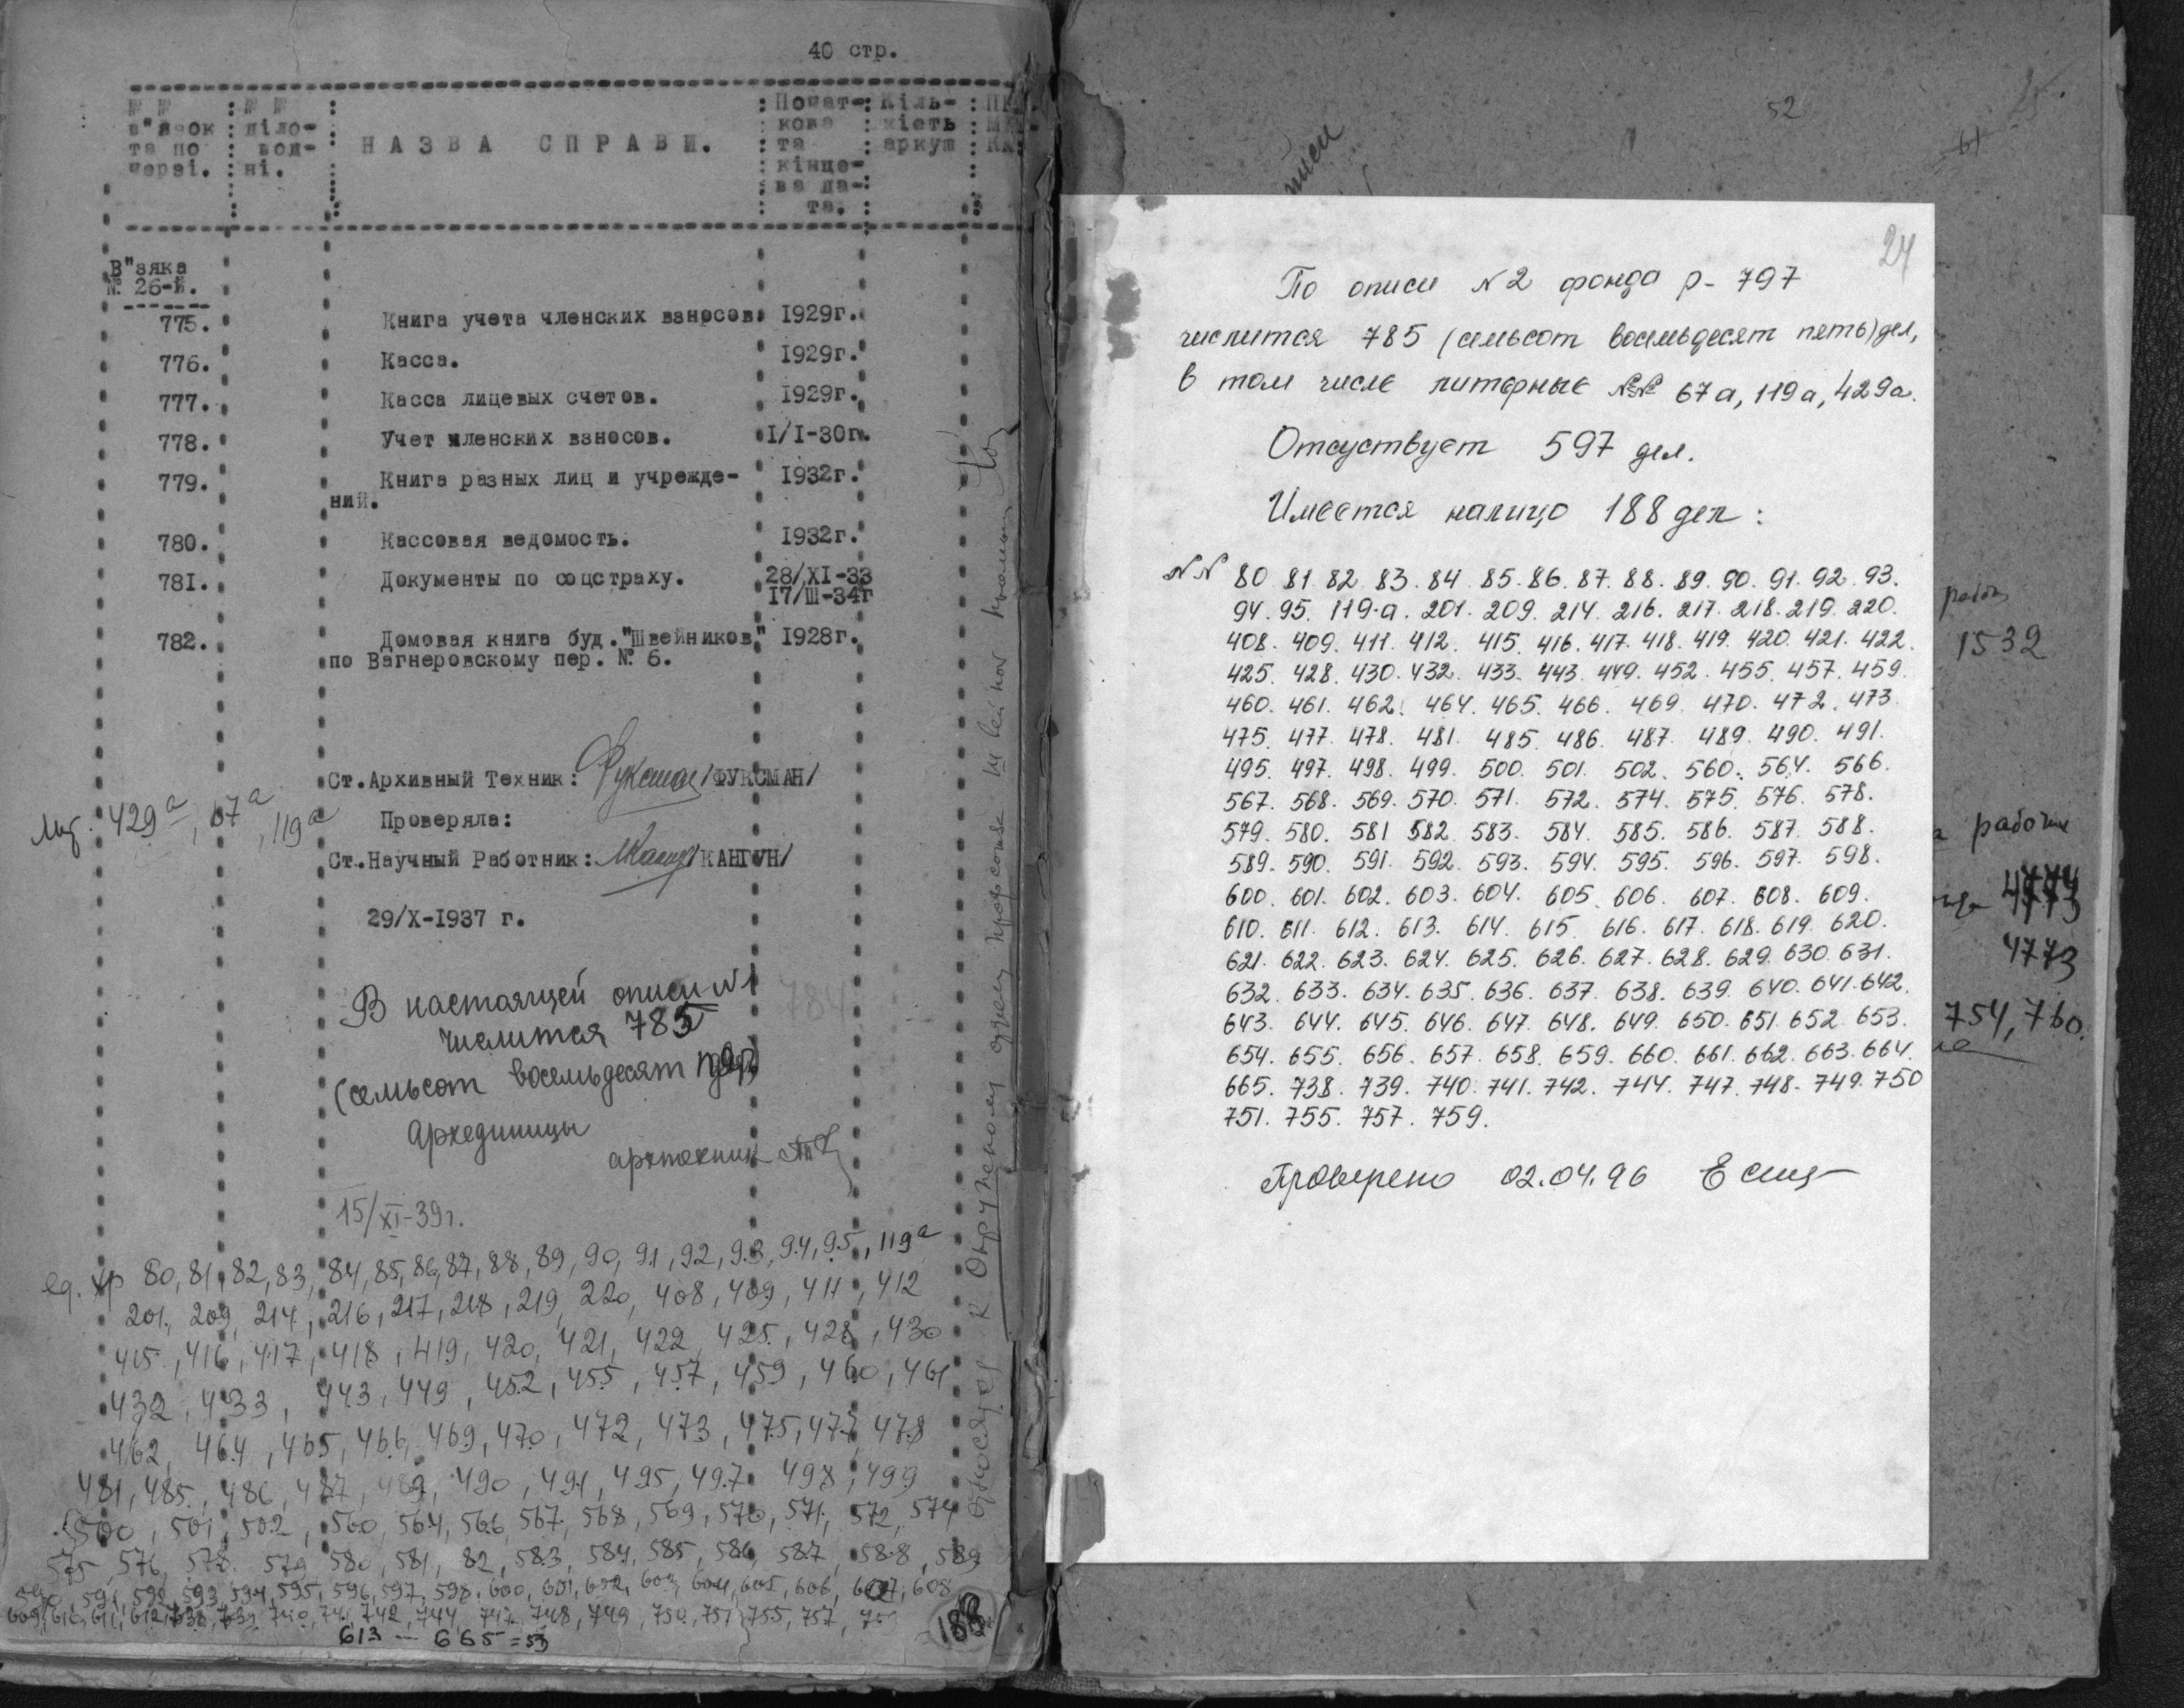 40 стр.
№ №
в"язок
та по
черзі.
№ №
діло-
вод-
ні.
НАЗВА СПРАВИ.
Почат-
кова
та
кінце-
ва да-
та.
Кіль-
кість
аркуш
В"зяка
№ 26-й.
775. Книга учета членских взносов. 1929г.
776. Касса. 1929г.
777. Касса лицевых счетов. 1929г.
778. Учет членских взносов. I/I-30г.
779. Книга разных лиц и учрежде- 1932г.
ний.
780. Кассовая ведомость. 1932г.
781. Документы по соцстраху. 28/XI-33
17/Ш-34г
782. Домовая книга буд."Швейников" 1928г.
по Вагнеровскому пер. № 6.
Ст.Архивный Техник: /ФУКСМАН/
Лит. 429а, 67а, 119а
Проверяла:
Ст.Научный Работник: /КАНГУН/
29/X-1937 г.
В настоящей описи №1
784
числится 785
(семьсот восемьдесят
Архединицы
архтехник
15/XI-39г.
ед. хр 80, 81, 82, 83, 84, 85, 86, 87, 88, 89, 90, 91, 92, 93, 94, 95, 119а
201, 209, 214, 216, 217, 218, 219, 220, 408, 409, 411, 412
415, 416, 417, 418, 419, 420, 421, 422, 425, 428, 430
432, 433, 443, 449, 452, 455, 457, 459, 460, 461
462, 464, 465, 466, 469, 470, 472, 473, 475, 477, 478
481, 485, 486, 487, 489, 490, 491, 495, 497, 498, 499
500, 501, 502, 560, 564, 566, 567, 568, 569, 570, 571, 572, 574
575, 576, 578, 579, 580, 581, 82, 583, 584, 585, 586, 587, 588, 589
590, 591, 592, 593, 594, 595, 596, 597, 598, 600, 601, 602, 603, 604, 605, 606, 607, 608
609, 610, 611, 612, 738, 739, 740, 741, 742, 744, 747, 748, 749, 750, 751, 755, 757,
613 — 665 = 53
188
52
61
24
По описи №2 фонда р-797
числится 785 (семьсот восемьдесят пять) дел,
в том числе литерные №№ 67а, 119а, 429а.
Отсуствует 597 дел.
Имеется налицо 188 дел:
NN 80 81. 82. 83. 84. 85. 86. 87. 88. 89. 90. 91. 92. 93.
94. 95. 119-а. 201. 209. 214. 216. 217. 218. 219. 220.
408. 409. 411. 412. 415. 416. 417. 418. 419. 420. 421. 422.
425. 428. 430. 432. 433. 443. 449. 452. 455. 457. 459.
460. 461. 462. 464. 465. 466. 469. 470. 472. 473.
475. 477. 478. 481. 485. 486. 487. 489. 490. 491.
495. 497. 498. 499. 500. 501. 502. 560. 564. 566.
567. 568. 569. 570. 571. 572. 574. 575. 576. 578.
579. 580. 581 582. 583. 584. 585. 586. 587. 588.
589. 590. 591. 592. 593. 594. 595. 596. 597. 598.
600. 601. 602. 603. 604. 605. 606. 607. 608. 609.
610. 611. 612. 613. 614. 615. 616. 617. 618. 619. 620.
621. 622. 623. 624. 625. 626. 627. 628. 629. 630. 631.
632. 633. 634. 635. 636. 637. 638. 639. 640. 641. 642.
643. 644. 645. 646. 647. 648. 649. 650. 651. 652. 653.
654. 655. 656. 657. 658. 659. 660. 661. 662. 663. 664.
665. 738. 739. 740. 741. 742. 744. 747. 748. 749. 750
751. 755. 757. 759.
Проверено 02.04.96
1532
4773
754, 760.